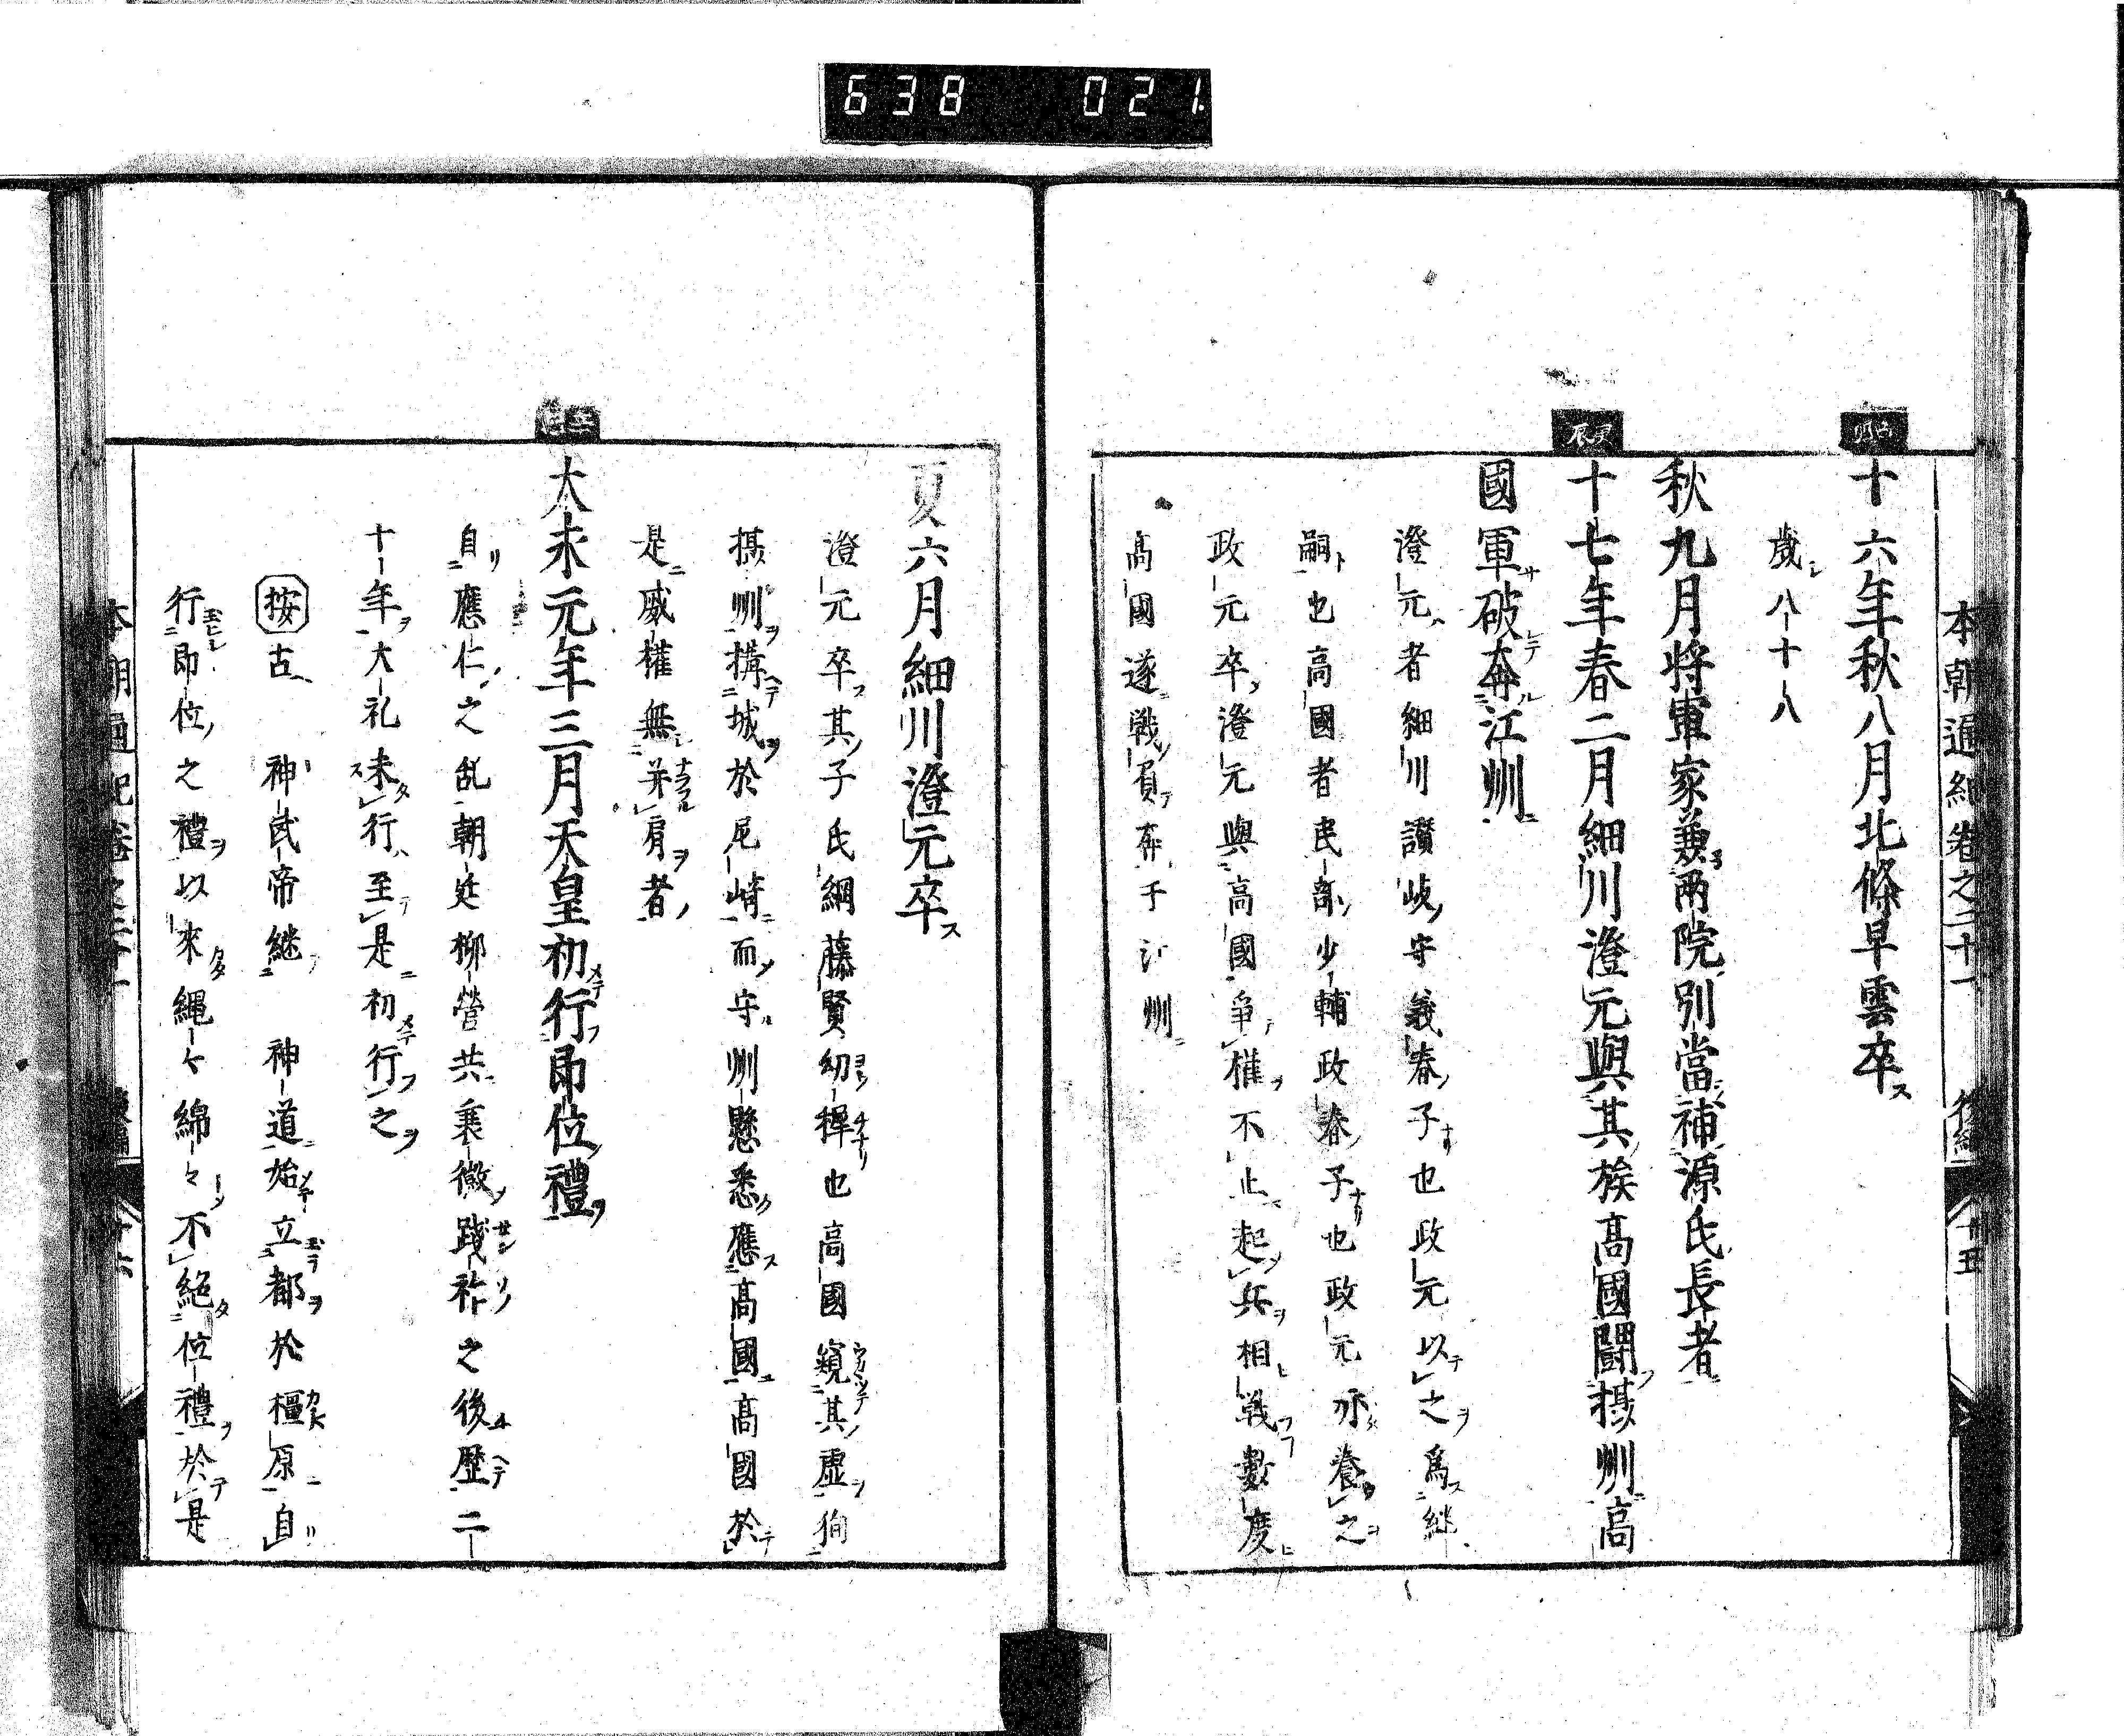 638 021
本朝通紀卷之二十一 後編 十五
己卯
十六年秋八月北條早雲卒ス
歲八十八
秋九月將軍家兼兩院別當補源氏長者
庚辰
十七年春二月細川澄元與其族高國鬪摂州高
國軍破奔江州
澄元者細川讃岐守義春子也政元以之爲継
嗣也高國者民部少輔政春子也政元亦養之
政元卒澄元與高國爭權不止起兵相戰數度
高國遂戰負奔于江州
夏六月細川澄元卒ス
澄元卒其子氏綱藤賢幼穉也高國窺其虛徇
摂州搆城於尼崎而守州懸悉應高國高國於
是威權無并肩者
大永元年三月天皇初行即位禮
自應仁之乱朝廷柳營共衰微踐祚之後歷二
十年大礼未行至是初行之
按古 神武帝継 神道始立都於橿原自
行即位之禮以來繩々綿々不絕位禮於是
本朝通紀卷之二十一 後編 十六